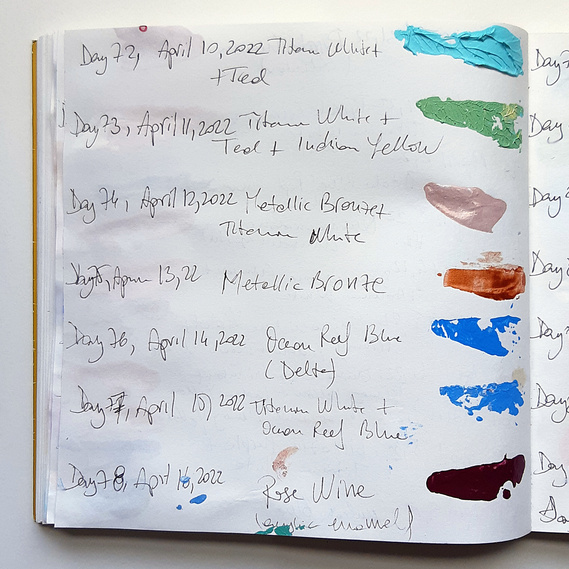 Day 72, April 10, 2022 Titan White
+ Teal
Day 73, April 11, 2022 Titanium White +
Teal + Indian Yellow
Day 74, April 12, 2022 Metallic Bronze +
Titanium White
Day 75, April 13, 22 Metallic Bronze
Day 76, April 14, 2022 Ocean Reef Blue
(Delta)
Day 77, April 15, 2022 Titanium White +
Ocean Reef Blue
Day 78, April 16, 2022
Rose Wine
Day
Day
Day
Day
Day
Day